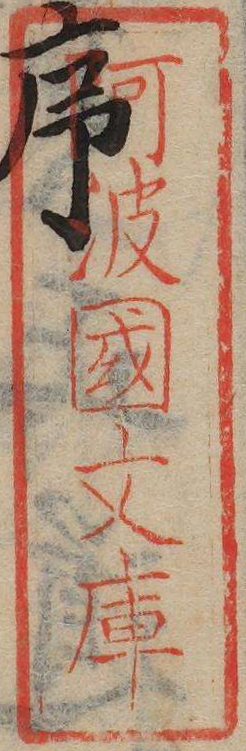 序
阿波國文庫